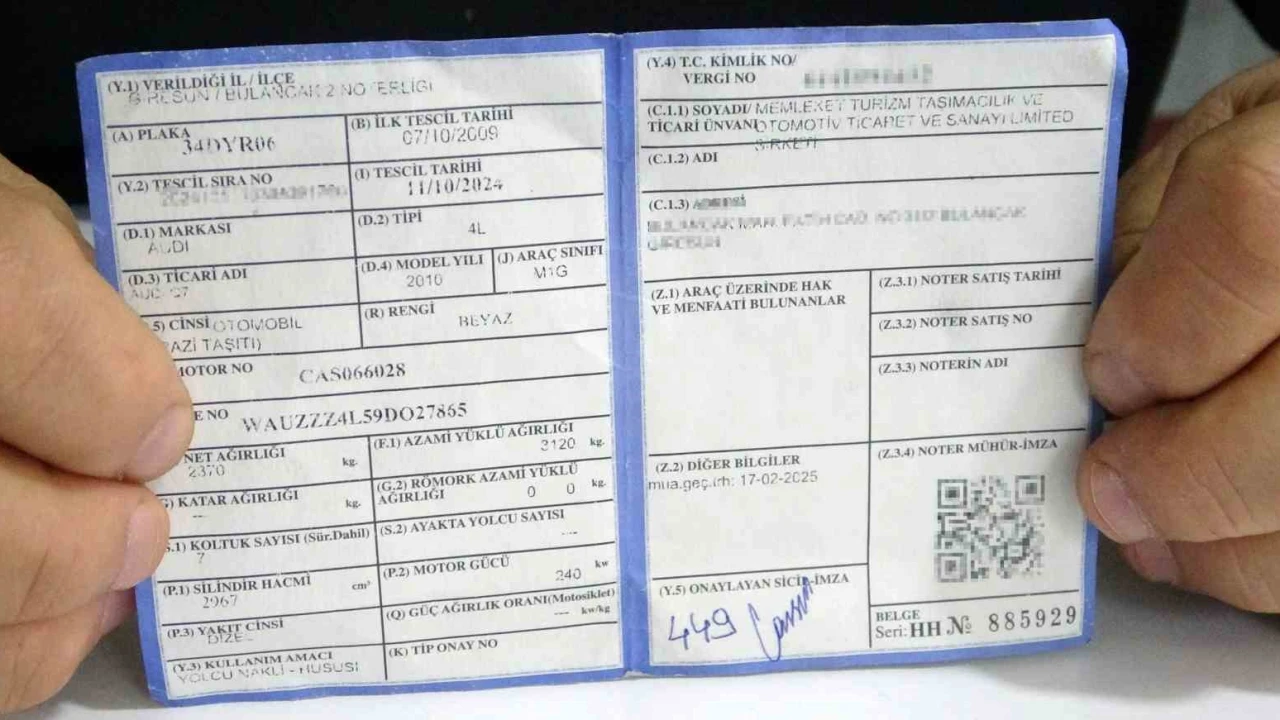 (Y.1) VERİLDİĞİ İL / İLÇE
GİRESUN / BULANCAK 2 NOTERLİĞİ
(A) PLAKA
34DYR06
(B) İLK TESCİL TARİHİ
07/10/2009
(Y.2) TESCİL SIRA NO
(I) TESCİL TARİHİ
11/10/2024
(D.1) MARKASI
AUDI
(D.2) TİPİ
4L
(D.3) TİCARİ ADI
(D.4) MODEL YILI
2010
(J) ARAÇ SINIFI
M1G
.5) CİNSİ OTOMOBİL
AZİ TAŞITI)
(R) RENGİ
BEYAZ
MOTOR NO
CAS066028
E NO
WAUZZZ4L59DO27865
NET AĞIRLIĞI
2370 kg.
(F.1) AZAMİ YÜKLÜ AĞIRLIĞI
3120 kg.
) KATAR AĞIRLIĞI
--- kg.
(G.2) RÖMORK AZAMİ YÜKLÜ
AĞIRLIĞI 0 0 kg.
.1) KOLTUK SAYISI (Sür.Dahil)
7
(S.2) AYAKTA YOLCU SAYISI
---
(P.1) SİLİNDİR HACMİ cm³
2967
(P.2) MOTOR GÜCÜ
240 kw
(P.3) YAKIT CİNSİ
DİZEL
(Q) GÜÇ AĞIRLIK ORANI(Motosiklet)
--- kw/kg
(Y.3) KULLANIM AMACI
YOLCU NAKLİ - HUSUSİ
(K) TİP ONAY NO
(Y.4) T.C. KİMLİK NO/
VERGİ NO
(C.1.1) SOYADI/ MEMLEKET TURİZM TAŞIMACILIK VE
TİCARİ ÜNVANI OTOMOTİV TİCARET VE SANAYİ LİMİTED
ŞİRKETİ
(C.1.2) ADI
(C.1.3) ADRESİ
GİRESUN
(Z.1) ARAÇ ÜZERİNDE HAK
VE MENFAATİ BULUNANLAR
(Z.3.1) NOTER SATIŞ TARİHİ
(Z.3.2) NOTER SATIŞ NO
(Z.3.3) NOTERİN ADI
(Z.2) DİĞER BİLGİLER
mua.geç.trh: 17-02-2025
(Z.3.4) NOTER MÜHÜR-İMZA
(Y.5) ONAYLAYAN SİCİL-İMZA
449
BELGE
Seri: HH № 885929